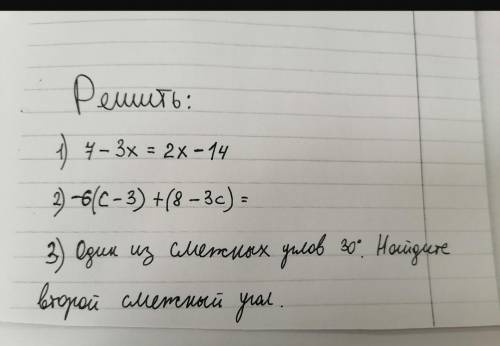 Решить:
1) 7 - 3x = 2x - 14
2) -6(c - 3) + (8 - 3c) =
3) Один из смежных углов 30°. Найдите
второй смежный угол.